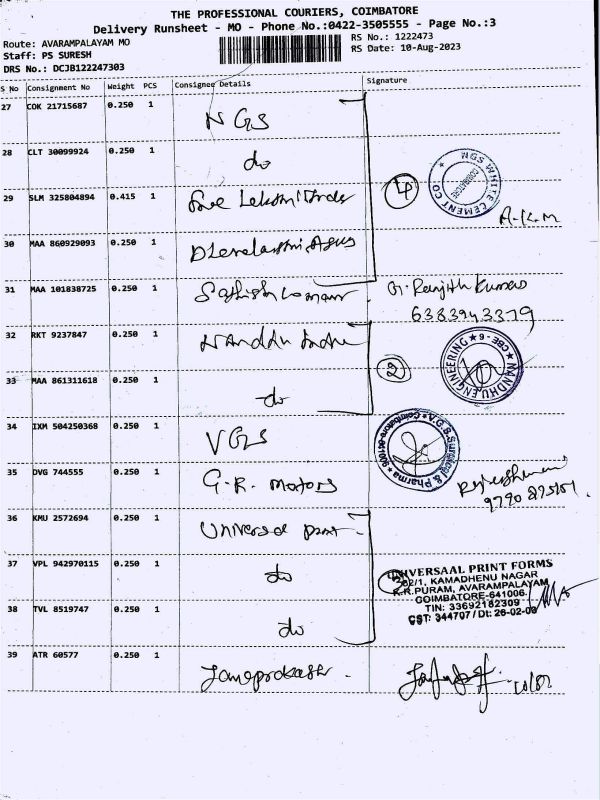 THE PROFESSIONAL COURIERS, COIMBATORE
Delivery Runsheet - MO - Phone No.:0422-3505555 - Page No.:3
Route: AVARAMPALAYAM MO
Staff: PS SURESH
DRS No.: DCJB122247303
RS No.: 1222473
RS Date: 10-Aug-2023
S No Consignment No Weight PCS Consignee Details Signature
27 COK 21715687 0.250 1 NGS
28 CLT 30099924 0.250 1 do
29 SLM 325804894 0.415 1 4
NGS WHITE CEMENT CO
COIMBATORE
A.K.M
30 MAA 860929093 0.250 1
31 MAA 101838725 0.250 1 G. Ranjith Kumar
6383943379
32 RKT 9237847 0.250 1
NANDHU ENGINEERING ★ CBE-6 ★
33 MAA 861311618 0.250 1 do
34 IXM 504250368 0.250 1 VGS
V.G.S. Surgical & Pharma
35 DVG 744555 0.250 1 G.R. motors
36 KMU 2572694 0.250 1 Universal print
37 VPL 942970115 0.250 1 do
UNIVERSAAL PRINT FORMS
302/1, KAMADHENU NAGAR
K.R.PURAM, AVARAMPALAYAM
COIMBATORE-641006.
TIN: 33692182309
CST: 344707 / Dt: 26-02-03
38 TVL 8519747 0.250 1 do
39 ATR 60577 0.250 1